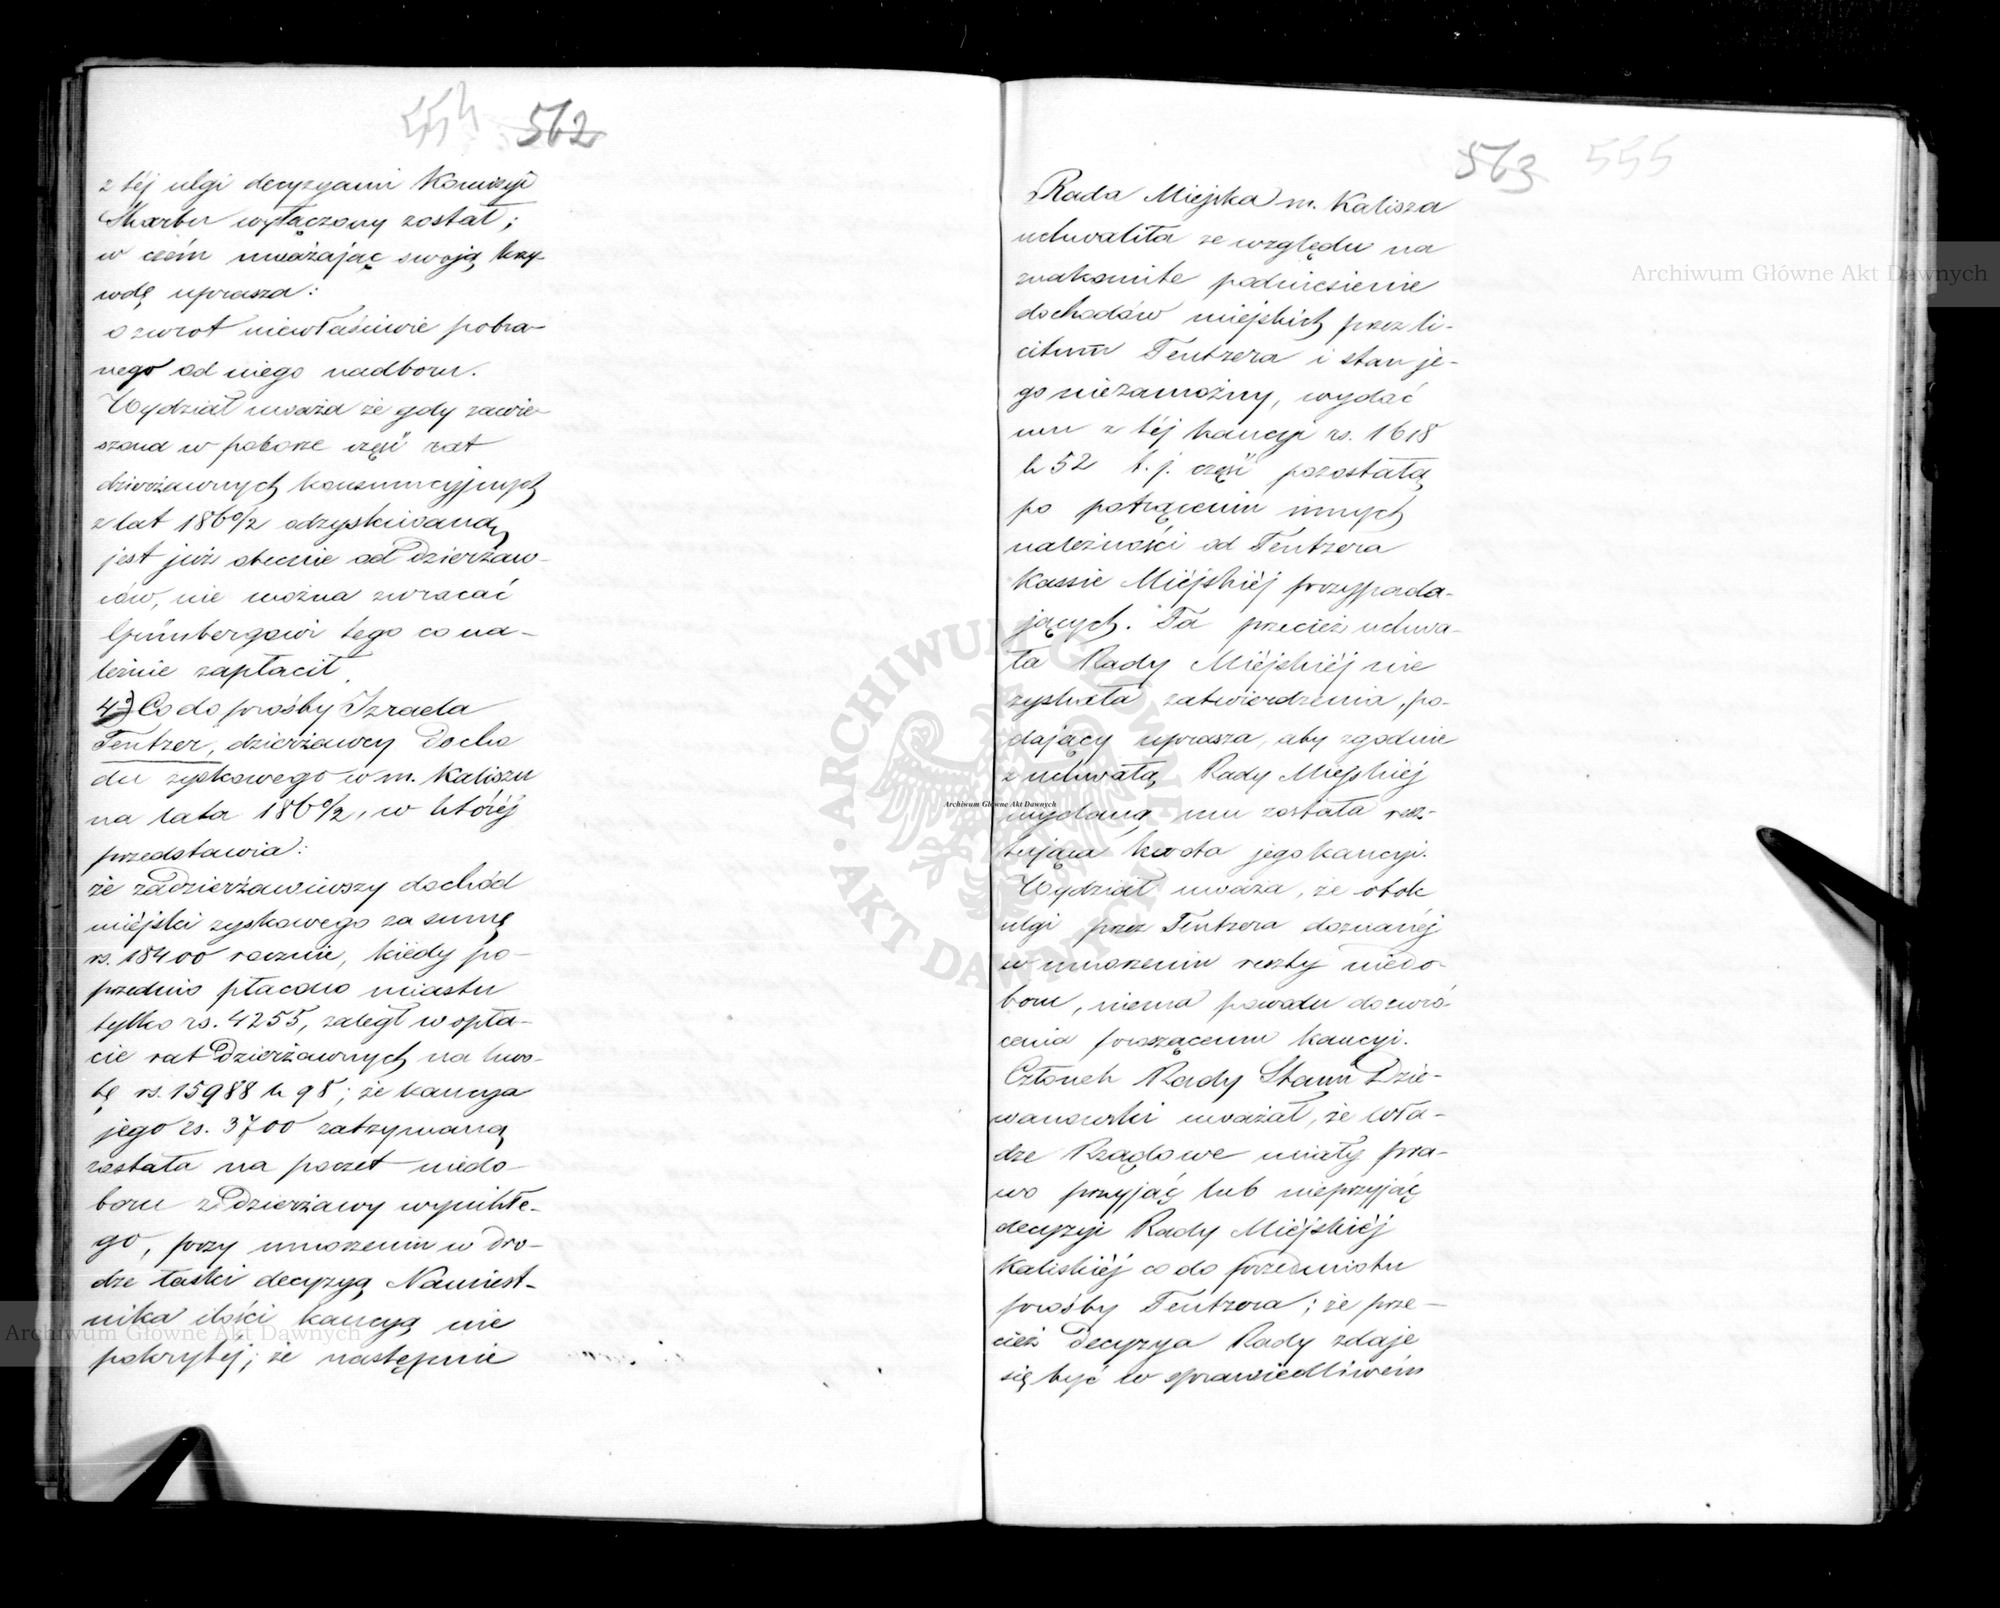 554 562
z téj ulgi decyzyami Komisyi
Skarbu wyłączony został;
w czém uważając swoją krzy-
wdę uprasza:
o zwrot niewłaściwie pobra-
nego od niego nadboru.
Wydział uważa że gdy zawie-
szona w poborze część rat
dzierżawnych konsumcyjnych
z lat 1860/2 odzyskiwaną
jest już obecnie od Dzierżaw-
ców, nie można zwracać
Grünbergowi tego co na-
leżnie zapłacił.
4) Co do prośby Izraela
Tentzer, dzierżawcy docho
du zyskowego w m. Kaliszu
na lata 1860/2, w któréj
przedstawia:
że zadzierżawiwszy dochód
miéjski zyskowego za sumę
rs. 18400 rocznie, kiedy po-
przednio płacono miastu
tylko rs. 4255, zaległ w opła-
cie rat Dzierżawnych na kwo-
tę rs. 15988 k 98; że kaucya
jego rs. 3700 zatrzymaną
została na poczet niedo-
boru z Dzierżawy wynikłe-
go, przy umorzeniu w dro-
dze łaski decyzyą Namiest-
nika ilości kaucyą nie
pokrytéj; że następnie
563 555
Rada Miejska m. Kalisza
uchwaliła ze względu na
znakomite podniesienie
dochodów miejskich przez li-
citum Tentzera i stan je-
go niezamożny, wydać
mu z téj kaucyi rs. 1618
k 52 t. j. część pozostałą
po potrąceniu innych
należności od Tentzera
Kassie Miéjskiéj przypada-
jących. Ta przecież uchwa-
ła Rady Miéjskiéj nie
zyskała zatwierdzenia, po-
dający uprasza, aby zgodnie
z uchwałą Rady Miejskiéj
wydaną mu została resz-
tująca kwota jego kaucyi.
Wydział uważa, że obok
ulgi przez Tentzera doznanéj
w umorzeniu reszty niedo-
boru, niema powodu do zwró-
cenia proszącemu kaucyi.
Członek Rady Stanu Dzie-
wanowski uważał, że Wła-
dze Rządowe miały pra-
wo przyjąć lub nieprzyjąć
decyzyi Rady Miéjskiéj
Kaliskiéj co do przedmiotu
prośby Tentzera; że prze-
cież Decyzya Rady zdaje
się być w sprawiedliwém
Archiwum Główne Akt Dawnych
Archiwum Główne Akt Dawnych
Archiwum Główne Akt Dawnych
ARCHIWUM GŁÓWNE AKT DAWNYCH